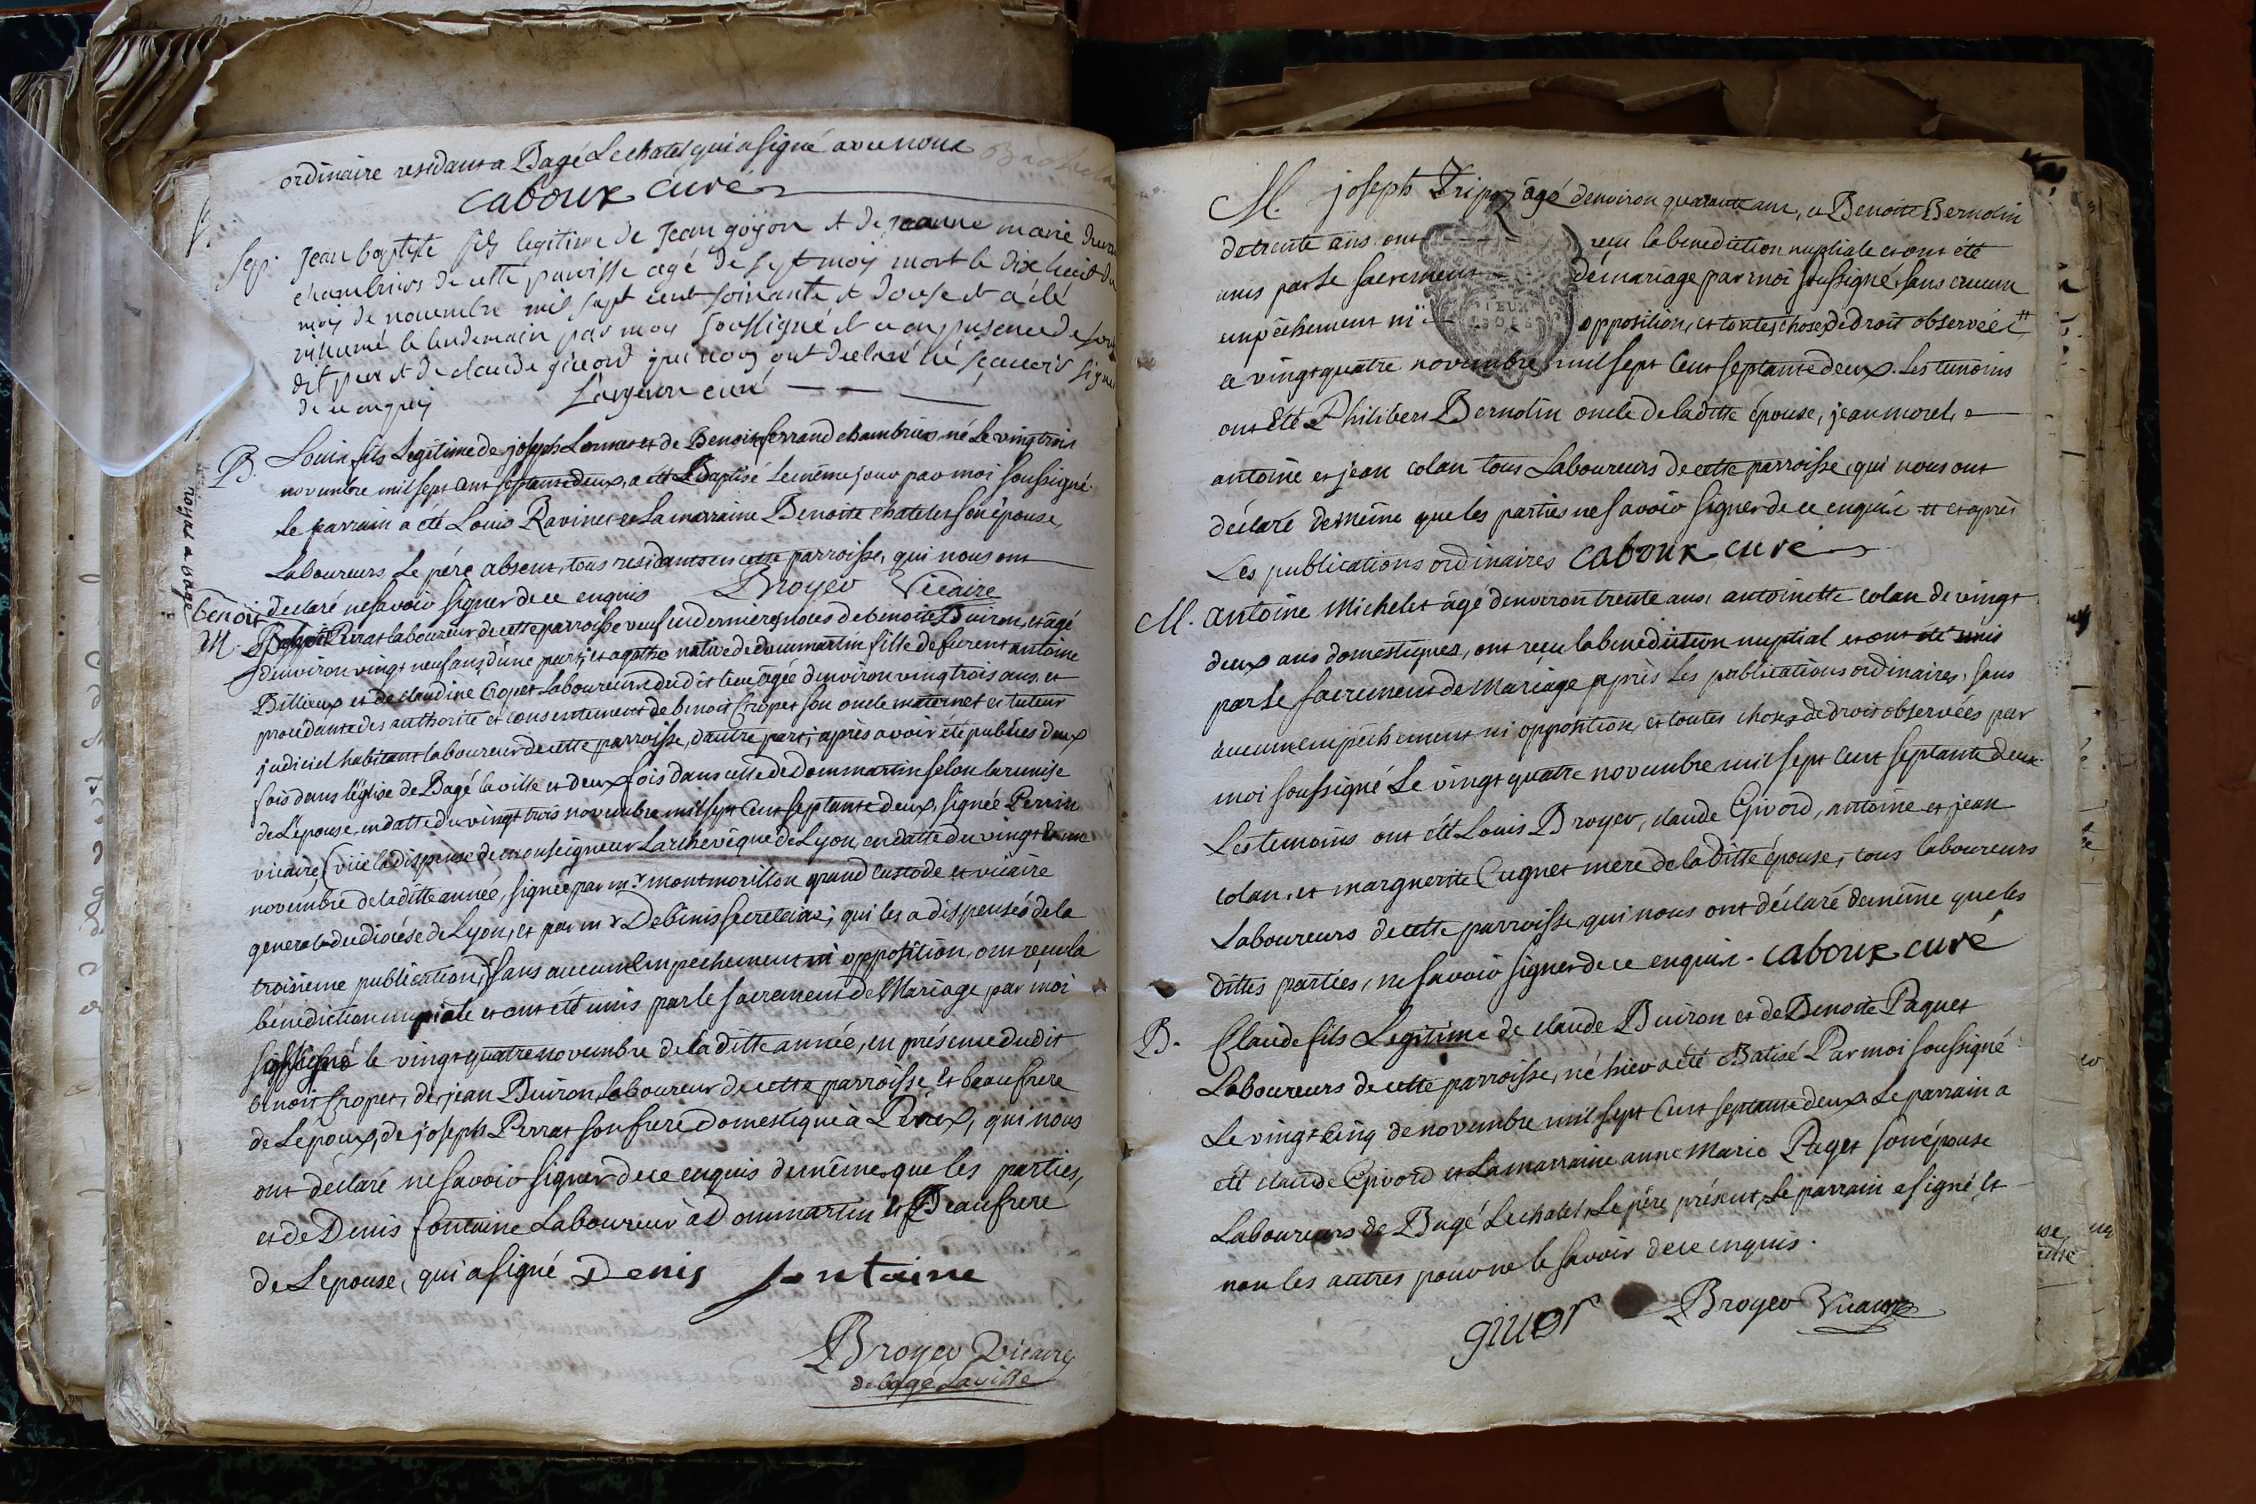 ordinaire residant a Bagé Lechatel qui a signé avec nous
caboux curé
Sep. Jean baptiste fils legitime de Jean goyon et de jeanne marie
chambriers de cette parroisse agé de sept mois mort le dix huit du
mois de novembre mil sept cent soixante et douse et a été
inhumé le lendemain par moy soussigné et ce en presence de
dit pere et de claude givord qui nous ont declaré ne sçavoir signer
de ce enquis Largeron curé
B. Louis fils Legitime de joseph Lonnet et de Benoite ferrand chambriers né Le vingt trois
novembre mil sept Cent septante deux, a été Baptisé Le même jour par moi soussigné.
Le parrain a été Louis Ravinet et La marraine Benoite chatelet son épouse,
Laboureurs Le pére absent, tous residants en cette parroisse, qui nous ont
declaré ne savoir signer de ce enquis Broyer Vicaire
benoit
M. Perrat laboureur de cette parroisse veuf en derniere nôces de benoite Buiron, et agé
d'environ vingt neuf ans, d'une part; et agathe native de dommartin fille de furent antoine
Billioux et de claudine Cropet Laboureurs dudit lieu âgée d'environ vingt trois ans et
procédante des authorité et consentement de benoit Cropet son oncle maternel et tuteur
judiciel habitant laboureur de cette parroisse, d'autre part; après avoir été publiés deux
fois dans l'église de Bagé la ville et deux fois dans celle de Dommartin selon la remise
de L'epouse, en datte du vingt trois novembre mil sept Cent septante deux, signée Perrin
vicaire (vûe la dispense de monseigneur L'archevêque de Lyon, en datte du vingt
novembre de la ditte année, signée par mr. montmorillon grand Custode et vicaire
general du diocése de Lyon, et par mr Debinis secretaire; qui les a dispensés de la
troisieme publication;) sans aucun empechement ni opposition, ont reçu la
bénédiction nuptiale et ont été unis par le sacrement de Mariage par moi
soussigné le vingt quatre novembre de la ditte année, en présence dudit
benoit Cropet, de jean Buiron, Laboureur de cette parroisse et beaufrere
de L'epoux, de joseph Perrat son frere domestique à Péroux, qui nous
ont déclaré ne savoir signer de ce enquis de même que les parties,
et de Denis fontaine Laboureur à Dommartin et Beaufrere
de L'epouse, qui a signé Denis fontaine
Broyer Vicaire
de bagé Laville
noyat a bagé
M. joseph Tripoz âgé d'environ quarante ans, et Benoite Bernolin
de trente ans ont reçu la benediction nuptiale et ont été
unis par Le sacrement de mariage par moi soussigné, sans aucun
empêchement ni opposition, et toutes choses de droit observées #
ce vingt quatre novembre mil sept Cent septante deux. Les temoins
ont été Philibert Bernolin oncle de la ditte épouse, jean morel,
antoine et jean colan tous Laboureurs de cette parroisse, qui nous ont
déclaré de même que les parties ne savoir signer de ce enquis # et après
Les publications ordinaires caboux curé
M. antoine Michelet âgé d'environ trente ans, antoinette colan de vingt
deux ans domestiques, ont reçu la benediction nuptial et ont été unis
par Le sacrement de Mariage après Les publications ordinaires, sans
aucun empêchement ni opposition, et toutes choses de droit observées par
moi soussigné Le vingt quatre novembre mil sept Cent septante deux.
Les temoins ont été Louis Broyer, claude Givord, antoine et jean
colan, et marguerite Cugnet mere de la ditte épouse, tous laboureurs
Laboureurs de cette parroisse, qui nous ont déclaré de même que les
dittes parties, ne savoir signer de ce enquis. caboux curé
B. Claude fils Legitime de claude Buiron et de Benoite Paquet
Laboureurs de cette parroisse, né hier a été Batisé Par moi soussigné
Le vingt Cinq de novembre mil sept Cent septante deux. Le parrain a
été claude Givord et La marraine anne Marie Paget son épouse
Laboureurs de Bagé Lechatel, Le pére présent, Le parrain a signé, et
non les autres pour ne le savoir de ce enquis.
givor Broyer Vicaire